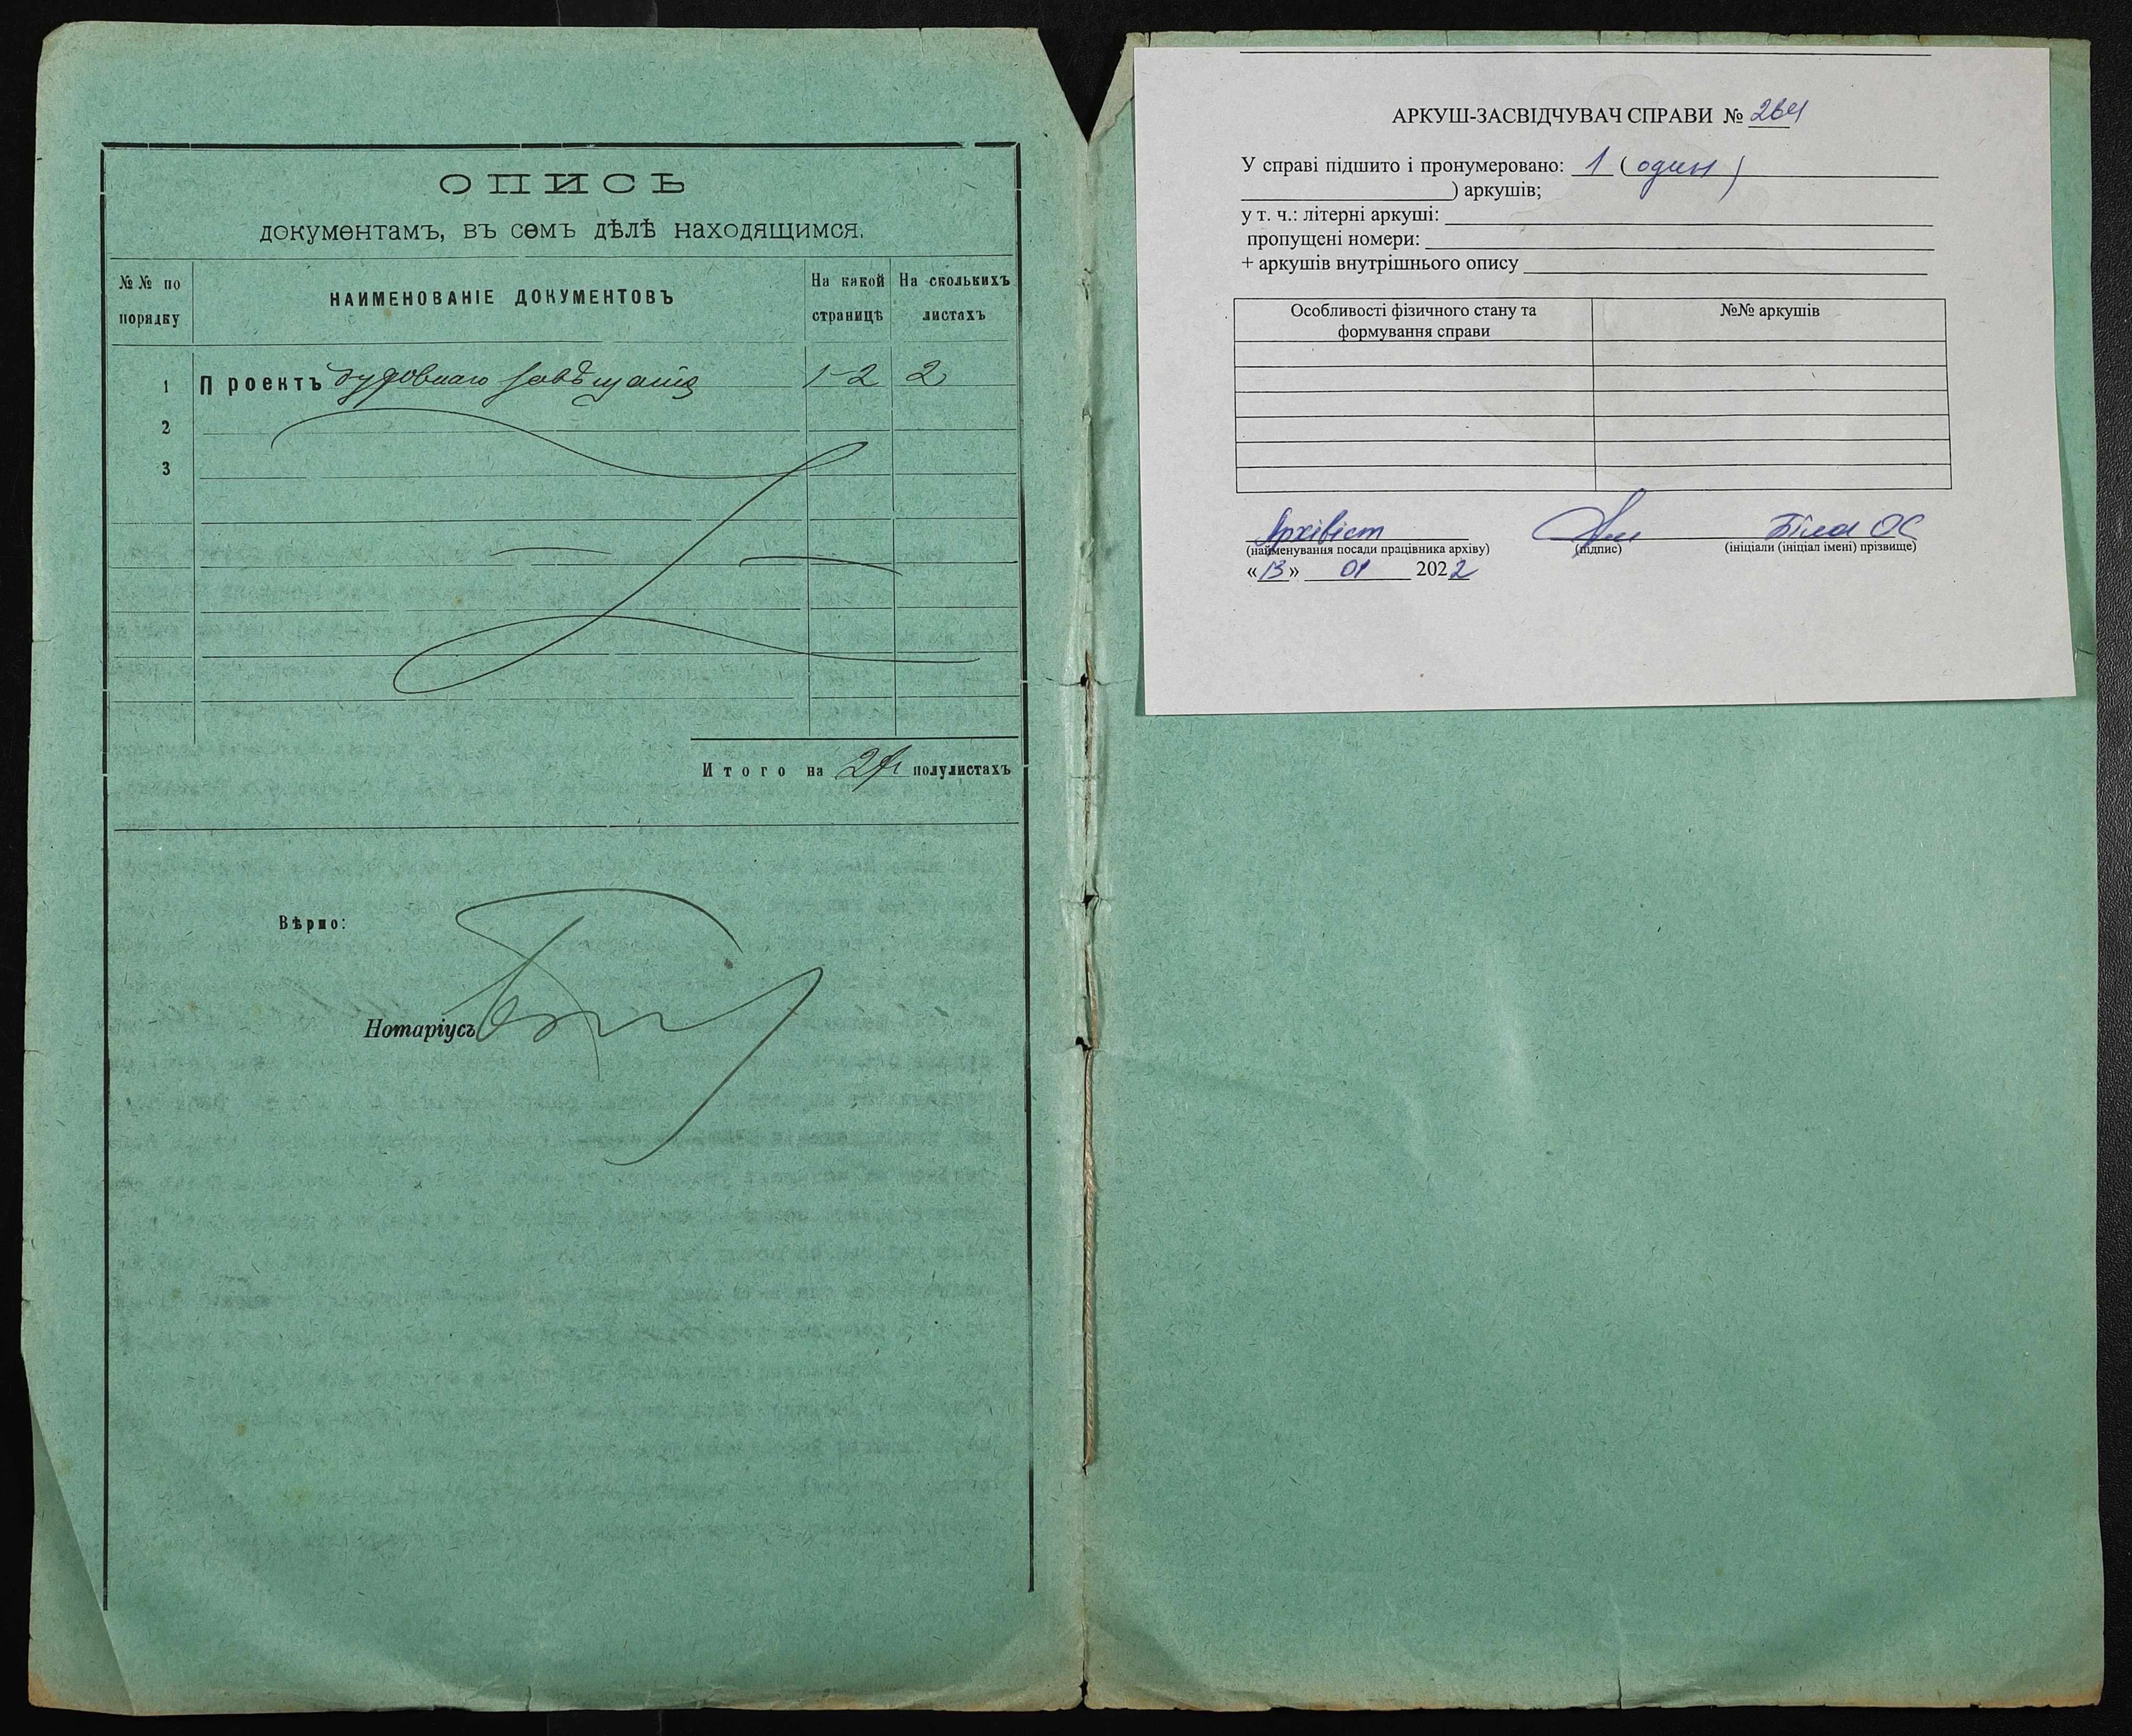 ОПИСЬ
документамъ, въ семъ дѣлѣ находящимся.
№№ по порядку
НАИМЕНОВАНІЕ ДОКУМЕНТОВЪ
На какой страницѣ
На сколькихъ листахъ
1 Проектъ духовнаго завѣщанія 1-2 2
2
3
Итого на 2 полулистахъ
Вѣрно:
Нотаріусъ
АРКУШ-ЗАСВІДЧУВАЧ СПРАВИ № 264
У справі підшито і пронумеровано: 1 (один)
) аркушів;
у т. ч.: літерні аркуші:
пропущені номери:
+ аркушів внутрішнього опису
Особливості фізичного стану та формування справи
№№ аркушів
Архівіст Біла ОС
(найменування посади працівника архіву) (підпис) (ініціали (ініціал імені) прізвище)
«13» 01 2022